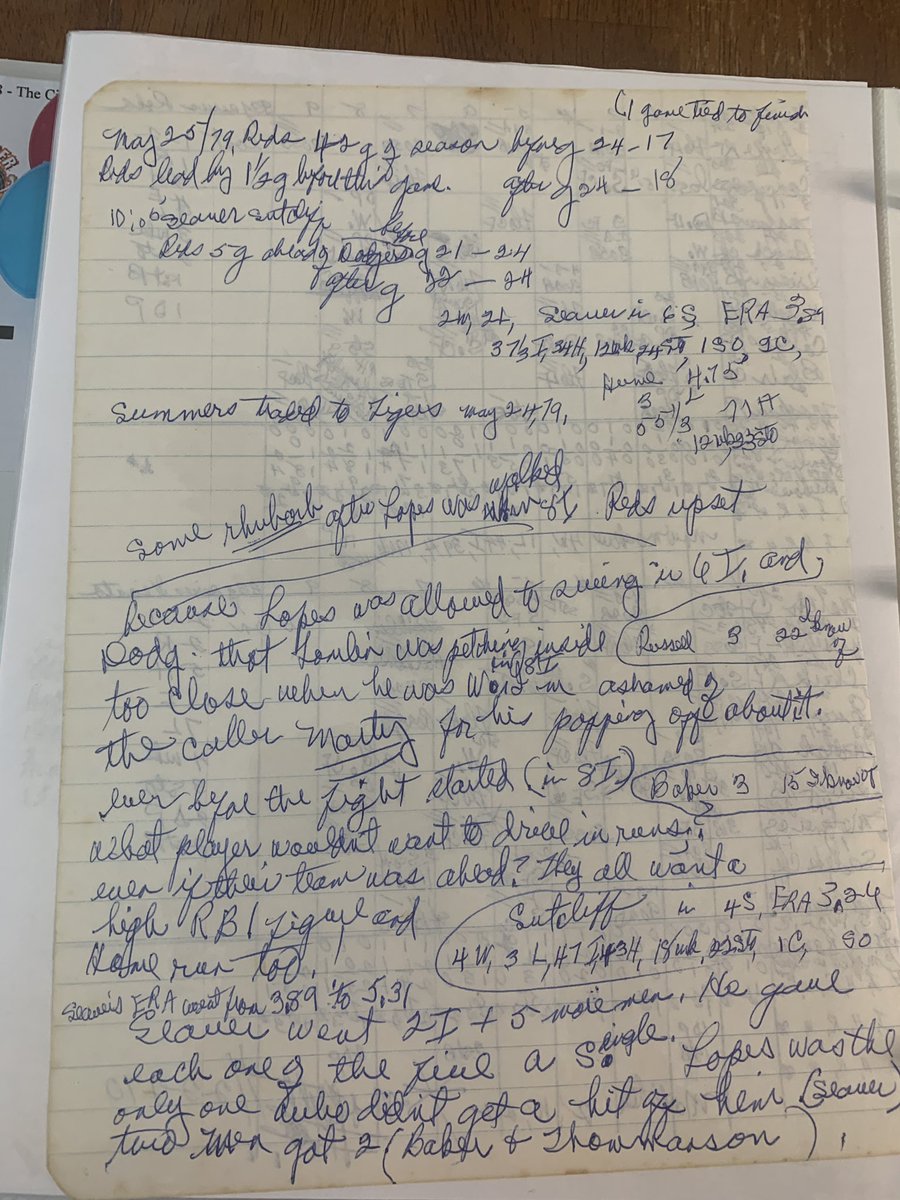 8 - The Ci
(1 game tied to finish
May 25/79, Reds 42 g of season before g 24-17
Reds lead by 1½ g before this game. after g 24 - 18
10:05, Seaver Sutcliff
before
Reds 5 g ahead of Dodgers g 21 - 24
after g 22 - 24
2W, 2L, Seaver in 6S ERA 3.89
37⅓ I, 34H, 12wk 24ST, 1SO 2C,
Hume 4.75
3 L
55⅓ 71H
12wk 23ST
Summers traded to Tigers May 24, 79.
walked
Some rhubarb after Lopes was in 8I, Reds upset
because Lopes was allowed to swing in 6I, and,
Dodg. that Tomlin was pitching inside
Russell 3 22 I know of
in 8I
too close when he was W. I'm ashamed of
the caller Marty for his popping off about it.
ever before the fight started (in 8I)
Baker 3 15 I know of
what player wouldn't want to drive in runs,
even if their team was ahead? They all want a
high RBI figure and
Home run too.
Sutcliff in 4S, ERA 3.24
4W, 3L, 47I, 43H, 18wk, 22ST, 1C, SO
Seaver's ERA went from 3.89 to 5.31
Seaver went 2I + 5 more men. He gave
each one of the five a Single. Lopes was the
only one who didn't get a hit off him (Seaver)
two men got 2 (Baker & Thommanson).